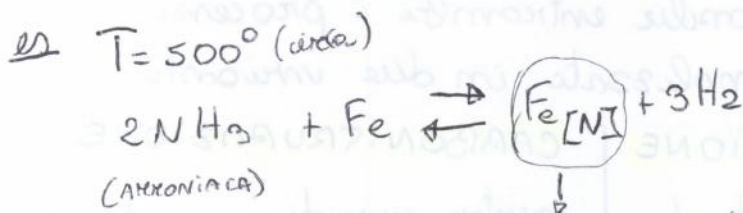 es T = 500° (circa)
2NH3 + Fe ⇌ Fe[N] + 3H2
(AMMONIACA)